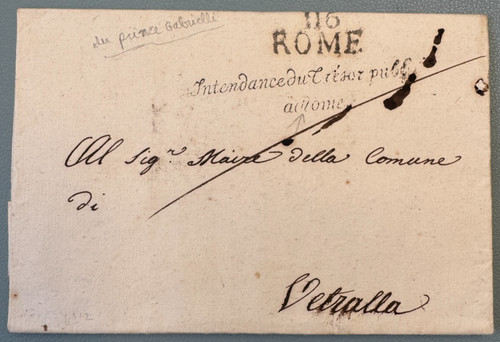 du prince Gabrielli
116
ROME
Intendance du Trésor publ
a Rome
Al Sig.r Maire della Comune
di
Vetralla
1812